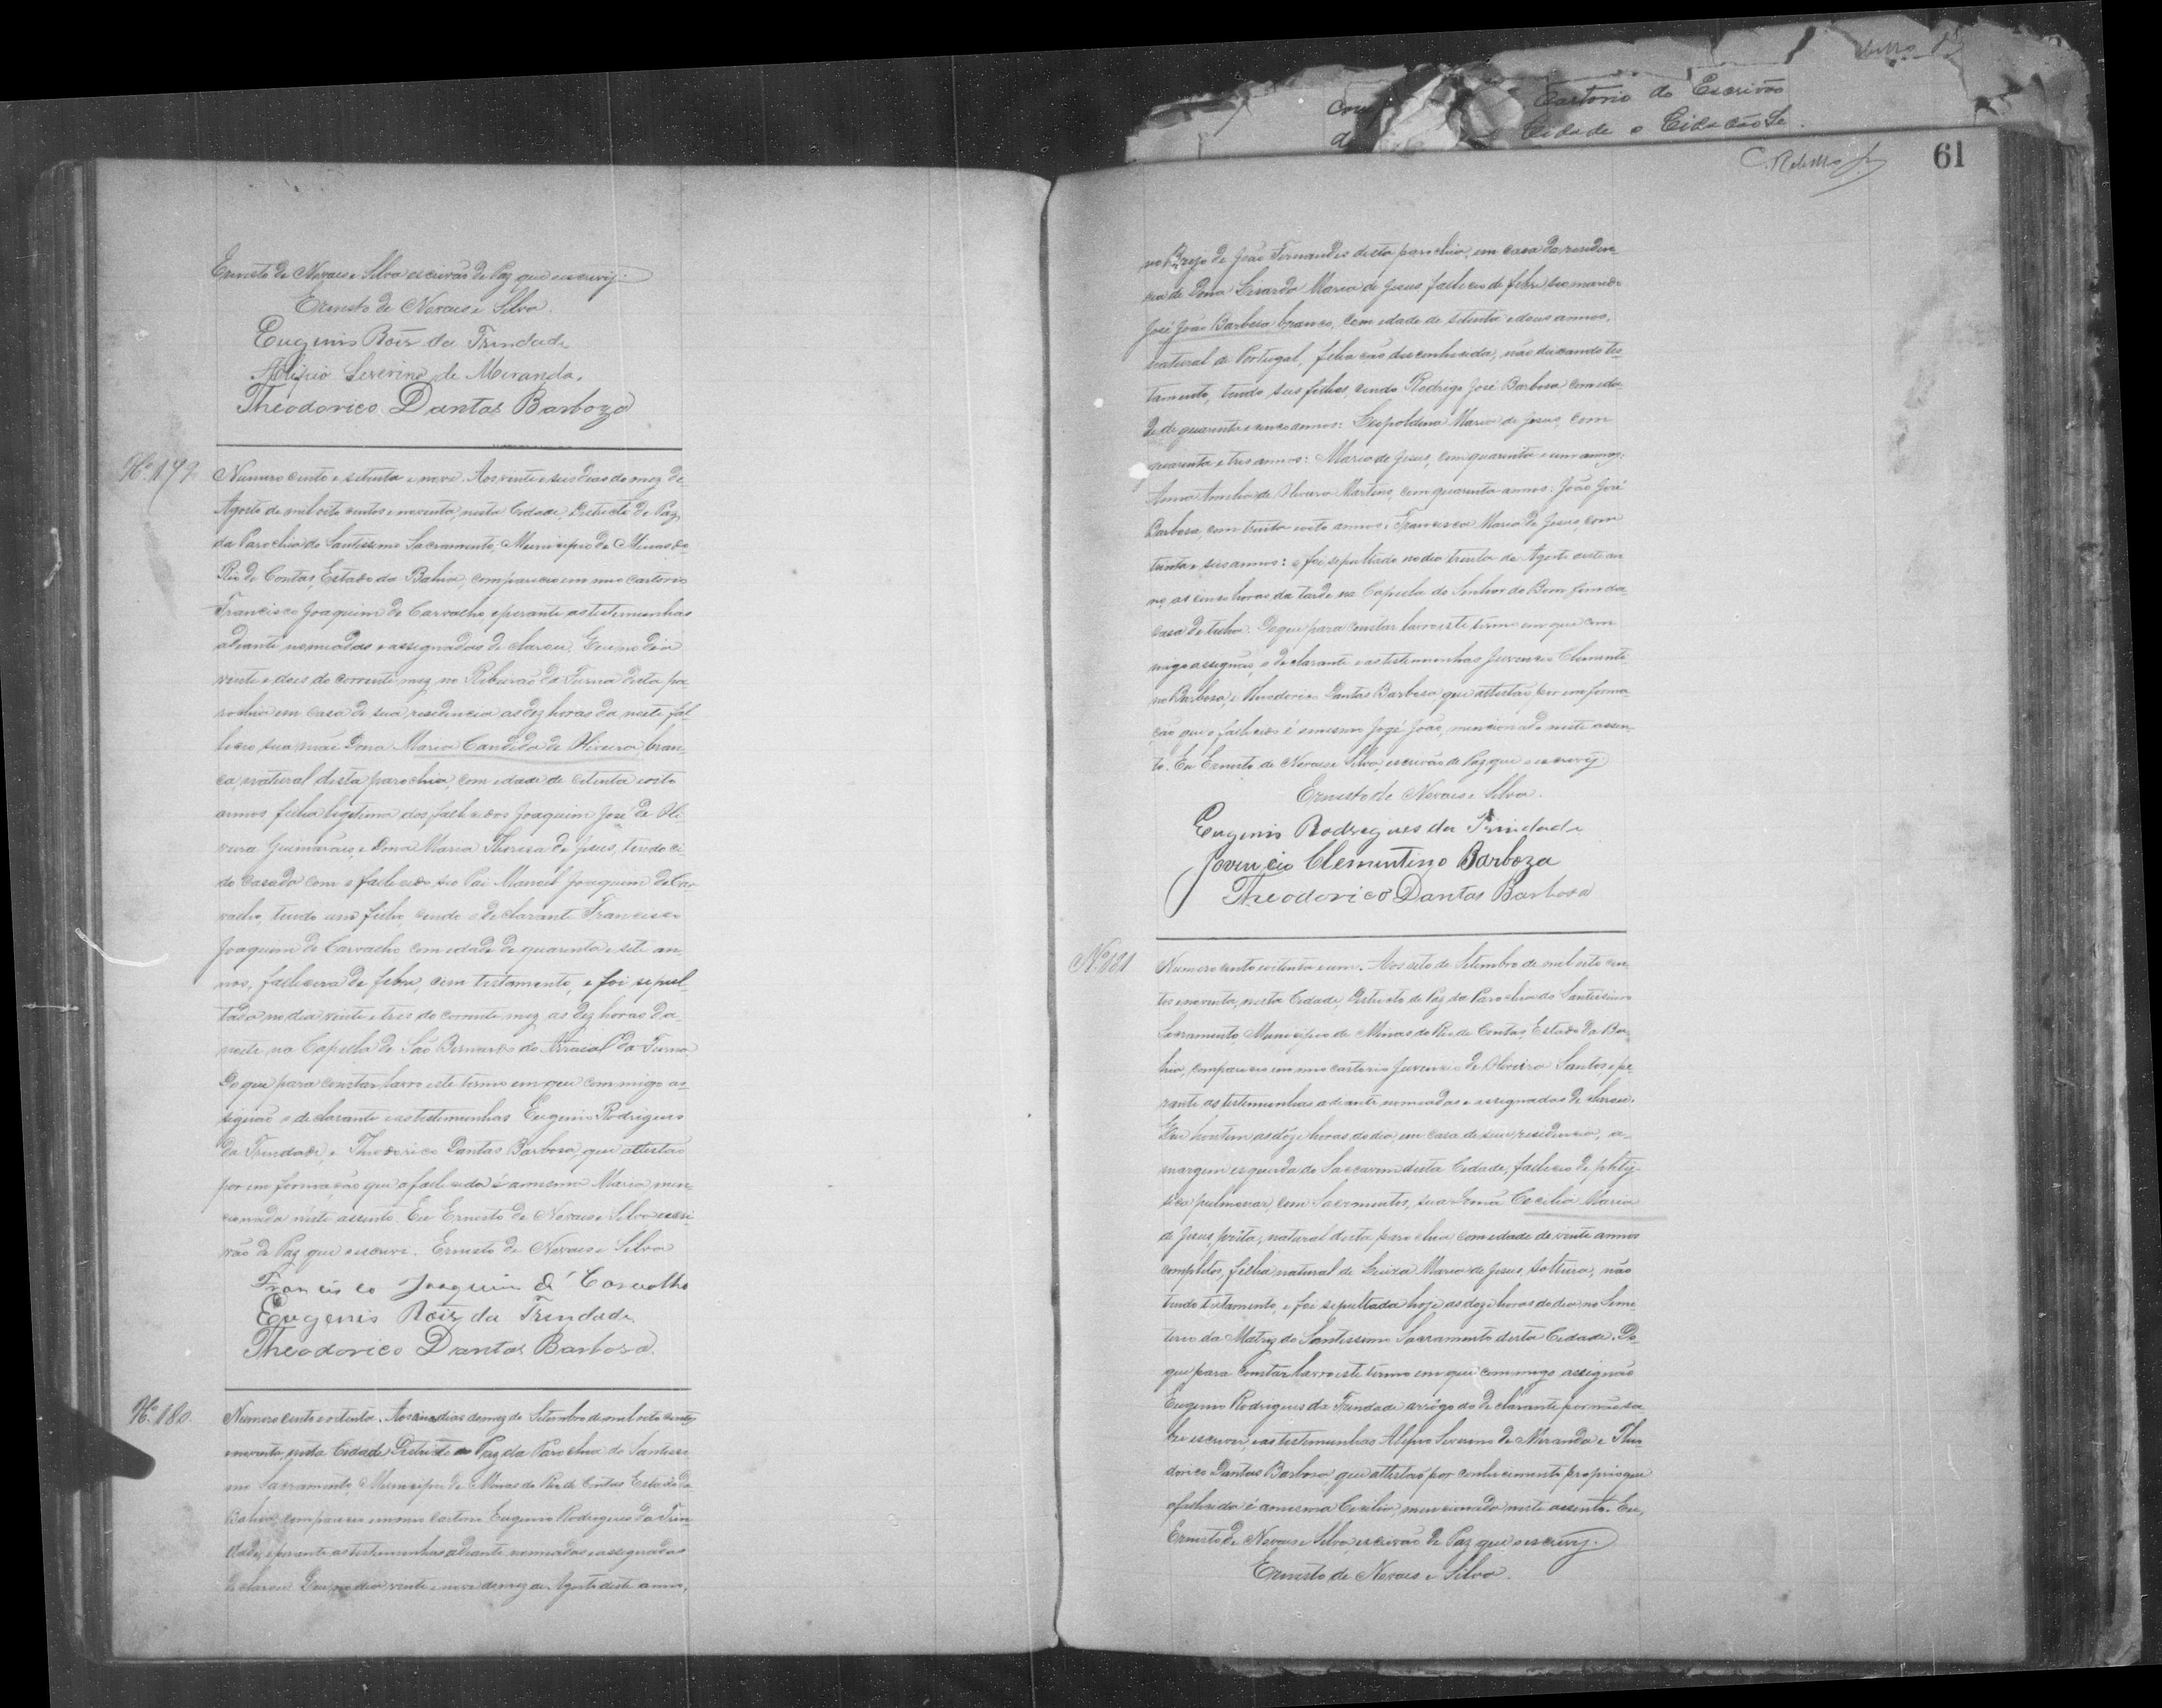 Ernesto de Novaes e Silva escrivão de Paz que escrevy.
Ernesto de Novaes e Silva.
Eugenio Roiz da Trindade
Alipio Severino de Miranda.
Theodorico Dantas Barboza
Nº 179. Numero cento e setenta e nove. Aos vinte e seis dias do mez de
Agosto de mil oito centos e noventa, nesta Cidade, Districto de Paz,
da Parochia do Santissimo Sacramento, Municipio de Minas do
Rio de Contas, Estado da Bahia, compareceo em meo cartorio
Francisco Joaquim de Carvalho, e perante as testemunhas
adiante nomeadas e assignadas declarou. Que no dia
vinte e dois do corrente mez, no Ribeirão da Furna desta pa-
rochia em casa de sua residencia as dez horas da noite fal-
leceo sua mãe Dona Maria Candida de Oliveira bran-
ca, natural desta parochia, com idade de citenta e oito
annos filha legitima dos fallecidos Joaquim José de Oli-
veira Guimarães, e Dona Maria Theresa de Jesus, tendo ci-
do casada com o fallecido seo Pai Manoel Joaquim de Car-
valho, tendo um filho, cendo o declarante Francisco
Joaquim de Carvalho com idade de quarenta e sete an-
nos, fallecera de febre, cem testamento, e foi sepul-
tada no dia vinte e tres do corrente mez as dez horas da
noite na Capella de São Bernardo do Arraial da Furna
Do que para constar lavro este termo em que commigo as-
signão o declarante e as testemunhas Eugenio Rodrigues
da Trindade, e Theodorico Dantas Barbosa, que attestão
por em formação que a fallecida é a mesma Maria, men-
cionada neste assento. Eu Ernesto de Novaes e Silva escri-
vão de Paz que escrevi. Ernesto de Novaes e Silva
Francisco Joaquim d' Carvalho
Eugenio Roiz da Trindade
Theodorico Dantas Barbosa.
Nº 180. Numero cento e oitenta. Aos dias do mez de Setembro de mil oito centos
e noventa, nesta Cidade Districto de Paz da Parochia do Santissi-
mo Sacramento, Municipio de Minas do Rio de Contas Estado da
Bahia, compareceo em meo cartorio Eugenio Rodrigues da Trin-
dade, e perante as testemunhas adiante nomeadas e assignadas
declarou. Que, no dia vinte e nove do mez de Agosto deste anno,
61
Cartorio do Escrivão
Cidade o Cidadão
no Brejo de João Fernandes desta parochia, em casa da residen-
cia de Dona Maria de Jesus, falleceo de febre, seo marido
José João Barbosa branco, com idade de setenta e dous annos,
natural de Portugal, filiação desconhecida, não deixando tes-
tamento, tendo seis filhos, cendo Rodrigo José Barbosa, com ida-
de de quarenta e cinco annos: Leopoldina Maria de Jesus, com
quarenta e tres annos: Maria de Jesus, com quarenta e um annos:
Anna Amelia de Oliveira Martins, com quarenta annos: João José
Barbosa, com trinta e oito annos, Francisca Maria de Jesus com
trinta e seis annos: e foi sepultado no dia trinta de Agosto deste an-
no, as cinco horas da tarde na Capella do Senhor do Bom fim da
casa de telha. Do que para constar lavro este termo em que com
migo assignão, o declarante e as testemunhas Juvencio Clementi-
no Barbosa, e Theodorico Dantas Barbosa que attestão por em forma
ção que o fallecido é o mesmo José João, mencionado neste assen-
to. Eu Ernesto de Novaes e Silva, escrivão de Paz que o escrevy
Ernesto de Novaes e Silva.
Eugenio Rodrigues da Trindade
Jovencio Clementino Barboza
Theodorico Dantas Barbosa
Nº 181 Numero cento e oitenta e um. Aos oito de Setembro de mil oito cen-
tos e noventa, nesta Cidade, Districto de Paz da Parochia do Santissimo
Sacramento, Municipio de Minas do Rio de Contas, Estado da Ba-
hia, compareceo em meo cartorio Juvencio de Oliveira Santos, e pe-
rante as testemunhas adiante nomeadas e assignadas declarou.
Que hontem as doze horas do dia em casa de sua residencia, a-
margem esquerda do desta Cidade, falleceo de phtiy-
sica pulmonar, com Sacramentos, sua Irmã Cecilia Maria
de Jesus, prêta, natural desta parochia com idade de vinte annos
completos, filha natural de Maria de Jesus, solteira, não
tendo testamento, e foi sepultada hoje as doze horas do dia no Semi-
terio da Matriz do Santissimo Sacramento desta Cidade. Do
que para constar lavro este termo em que commigo assignão
Eugenio Rodrigues da Trindade arrôgo do declarante por não sa-
ber escrever, e as testemunhas Alipio Severino de Miranda e Theo-
dorico Dantas Barbosa, que attestão por conhecimento proprio que
a fallecida é a mesma Cecilia, mencionada neste assento. Eu,
Ernesto de Novaes e Silva, escrivão de Paz que o escrevy.
Ernesto de Novaes e Silva.